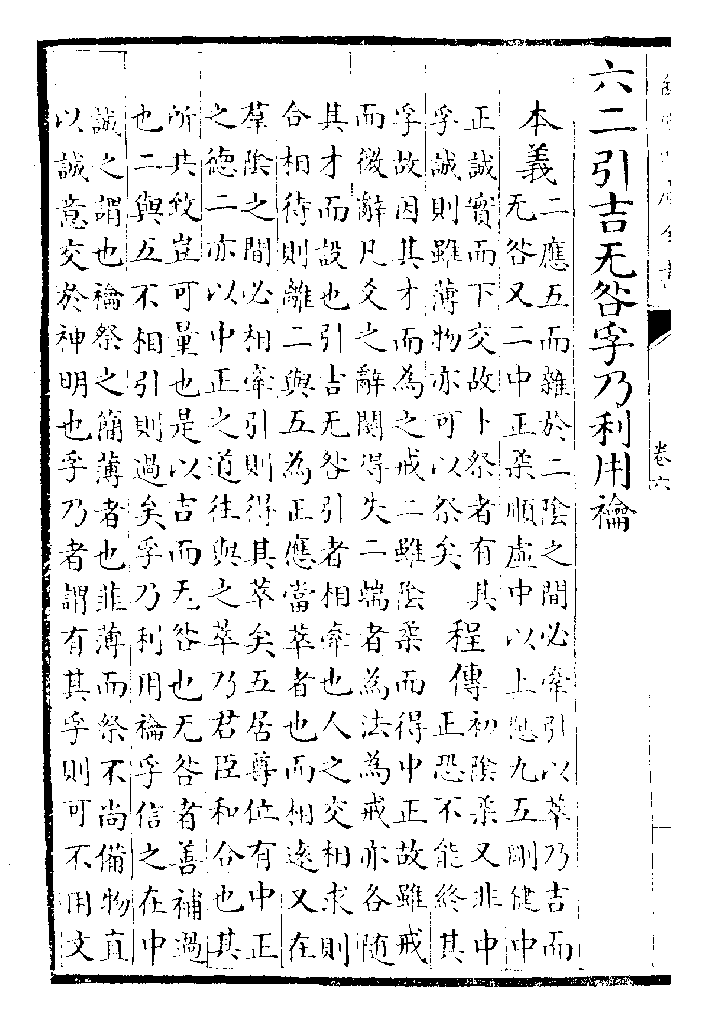 卷六
六二引吉无咎孚乃利用禴
本義
二應五而雜於二陰之間必牽引以萃乃吉而
无咎又二中正柔順虛中以上應九五剛健中
正誠實而下交故卜祭者有其
孚誠則雖薄物亦可以祭矣
程傳
初陰柔又非中
正恐不能終其
孚故因其才而為之戒二雖陰柔而得中正故雖戒
而微辭凡爻之辭關得失二端者為法為戒亦各隨
其才而設也引吉无咎引者相牽也人之交相求則
合相待則離二與五為正應當萃者也而相遠又在
羣陰之間必相牽引則得其萃矣五居尊位有中正
之德二亦以中正之道往與之萃乃君臣和合也其
所共致豈可量也是以吉而无咎也无咎者善補過
也二與五不相引則過矣孚乃利用禴孚信之在中
誠之謂也禴祭之簡薄者也菲薄而祭不尚備物直
以誠意交於神明也孚乃者謂有其孚則可不用文